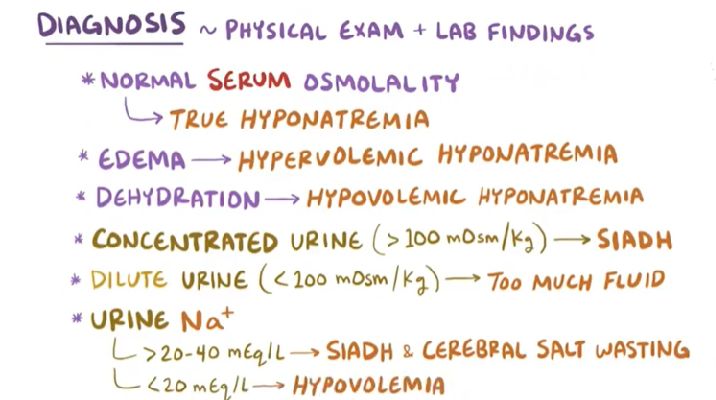 DIAGNOSIS ~ PHYSICAL EXAM + LAB FINDINGS
* NORMAL SERUM OSMOLALITY
↳ TRUE HYPONATREMIA
* EDEMA → HYPERVOLEMIC HYPONATREMIA
* DEHYDRATION → HYPOVOLEMIC HYPONATREMIA
* CONCENTRATED URINE (>100 mOsm/Kg) → SIADH
* DILUTE URINE (<100 mOsm/Kg) → TOO MUCH FLUID
* URINE Na⁺
>20-40 mEq/L → SIADH & CEREBRAL SALT WASTING
<20 mEq/L → HYPOVOLEMIA